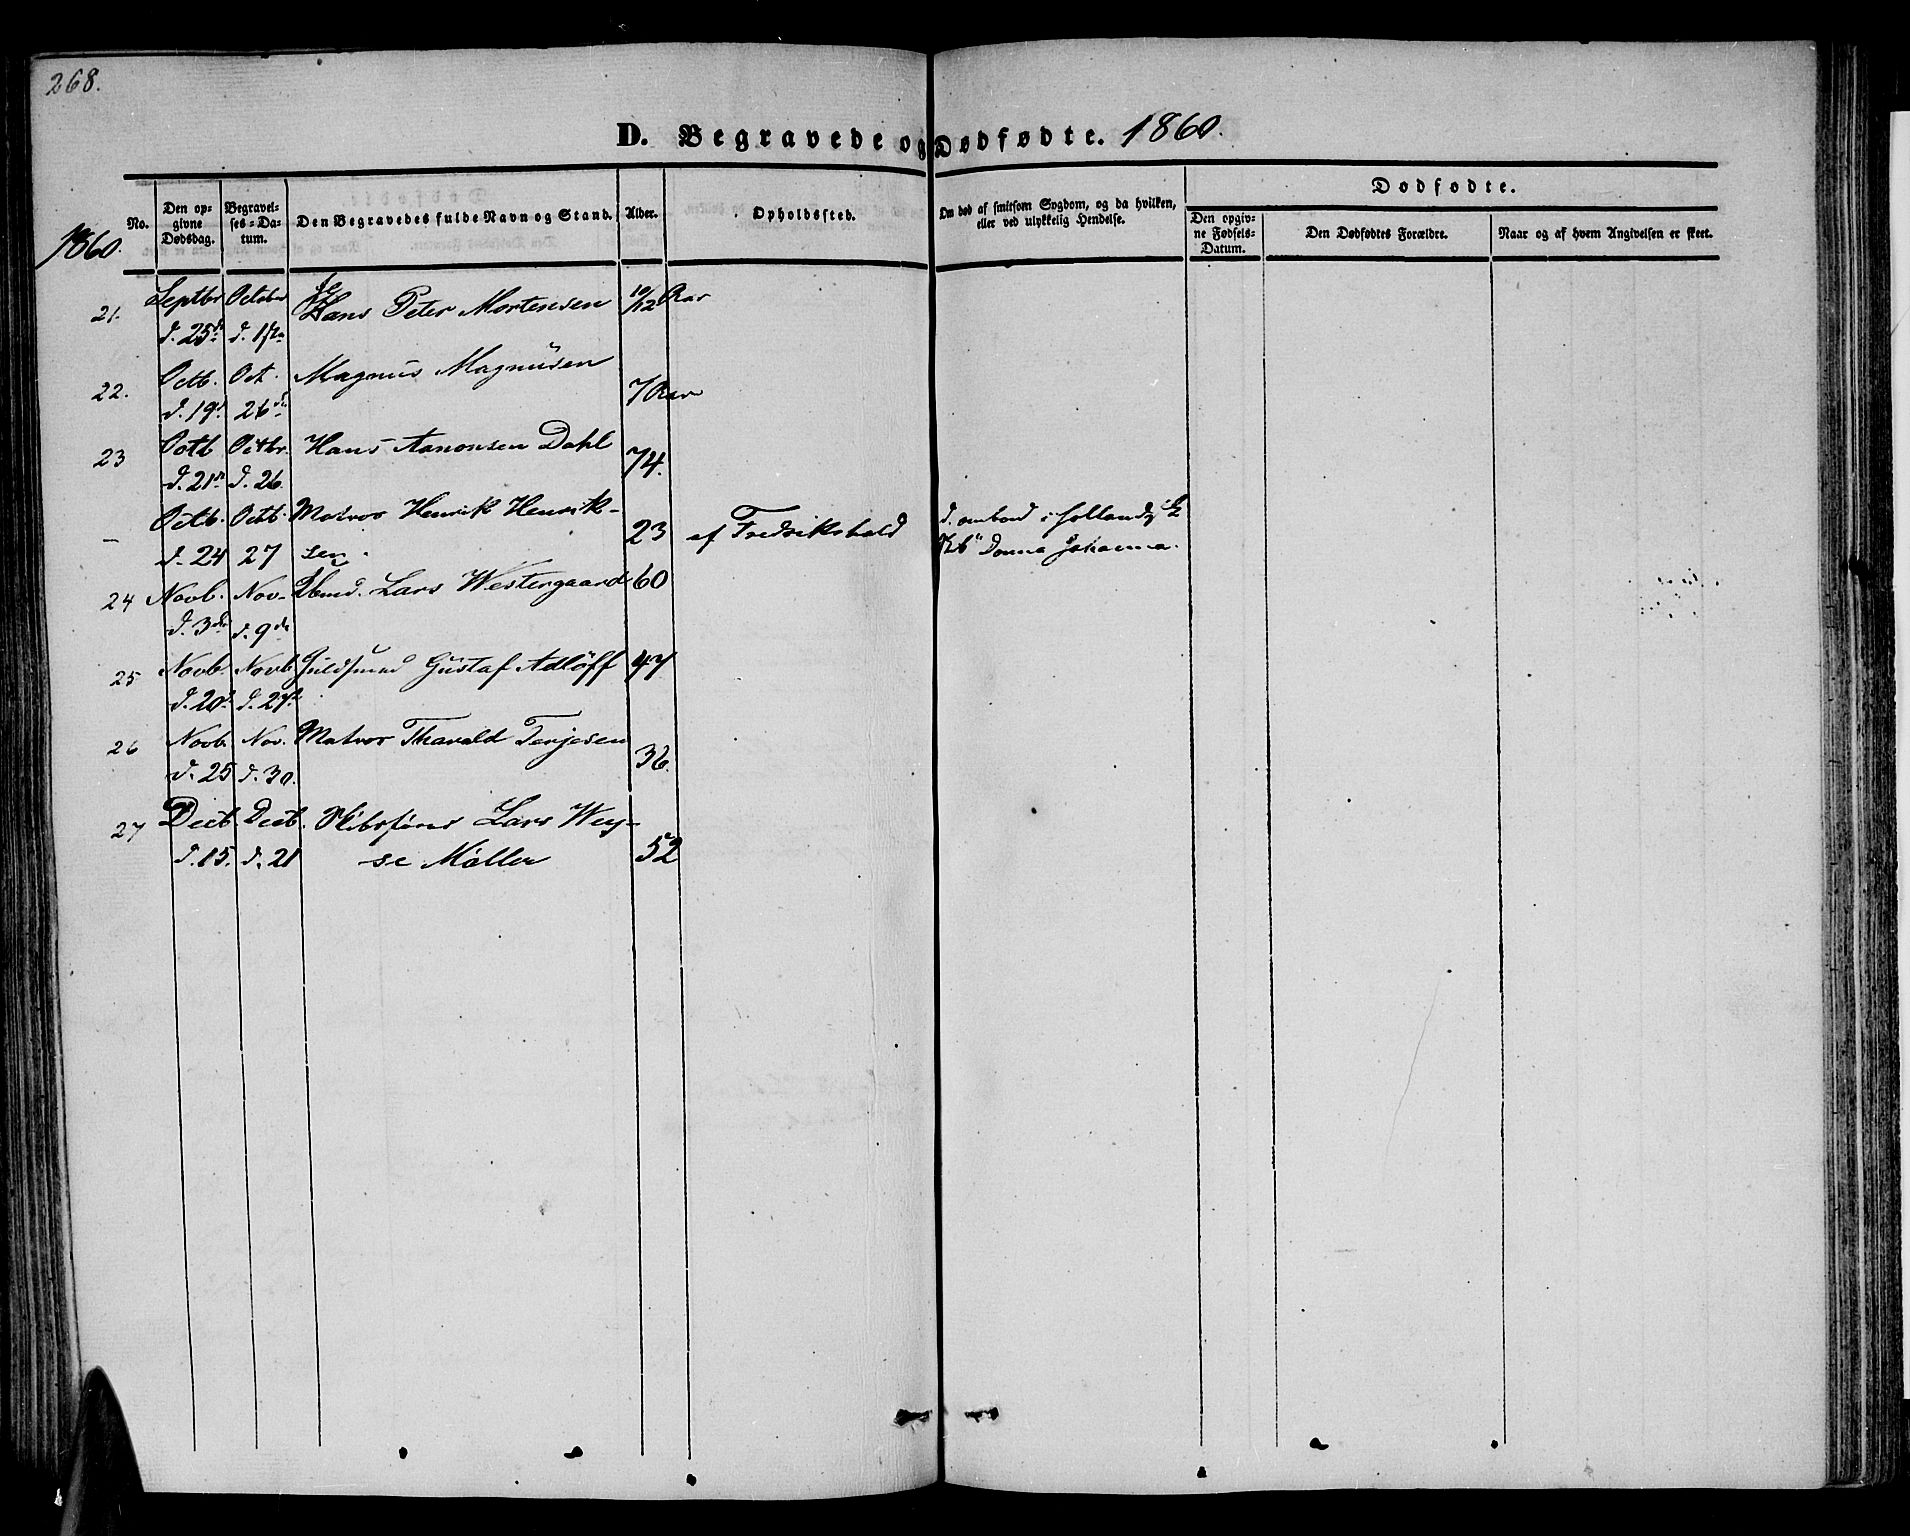 268.
D. Begravede og Dødfødte. 1860.
1860.
No.
Den op-
givne
Dødsdag.
Begravel-
ses-Da-
tum.
Den Begravedes fulde Navn og Stand.
Alder.
Opholdssted.
Om død af smitsom Sygdom, og da hvilken,
eller ved ulykkelig Hendelse.
Dødfødte.
Den opgiv-
ne Fødsels-
Datum.
Den Dødfødtes Forældre.
Naar og af hvem Angivelsen er skeet.
21. Septbr October Hans Peter Mortensen 10/12 Aar
d. 25d d. 1ste
22. Octb. Oct. Magnus Magnusen 7 Aar
d. 19d 26de
23 Octb Octbr. Hans Aanonsen Dahl 74.
d. 21d d. 26.
– Octb. Octb. Matros Henrik Henrik- 23 af Fredrikshald d. ombord i holland
d. 24 27 sen. "Donna Johanna.
24 Novb. Nov. Lars Westergaard 60
d. 3die d. 9de
25 Novb. Novb. Guldsmed Gustaf Adlöff 47
d. 20d d. 27d
26 Novb. Nov. Matros Tharald Terjesen 36.
d. 25 d. 30.
27 Decb. Decb. Skibsfører Lars Wey- 52
d. 15. d. 21 se Møller